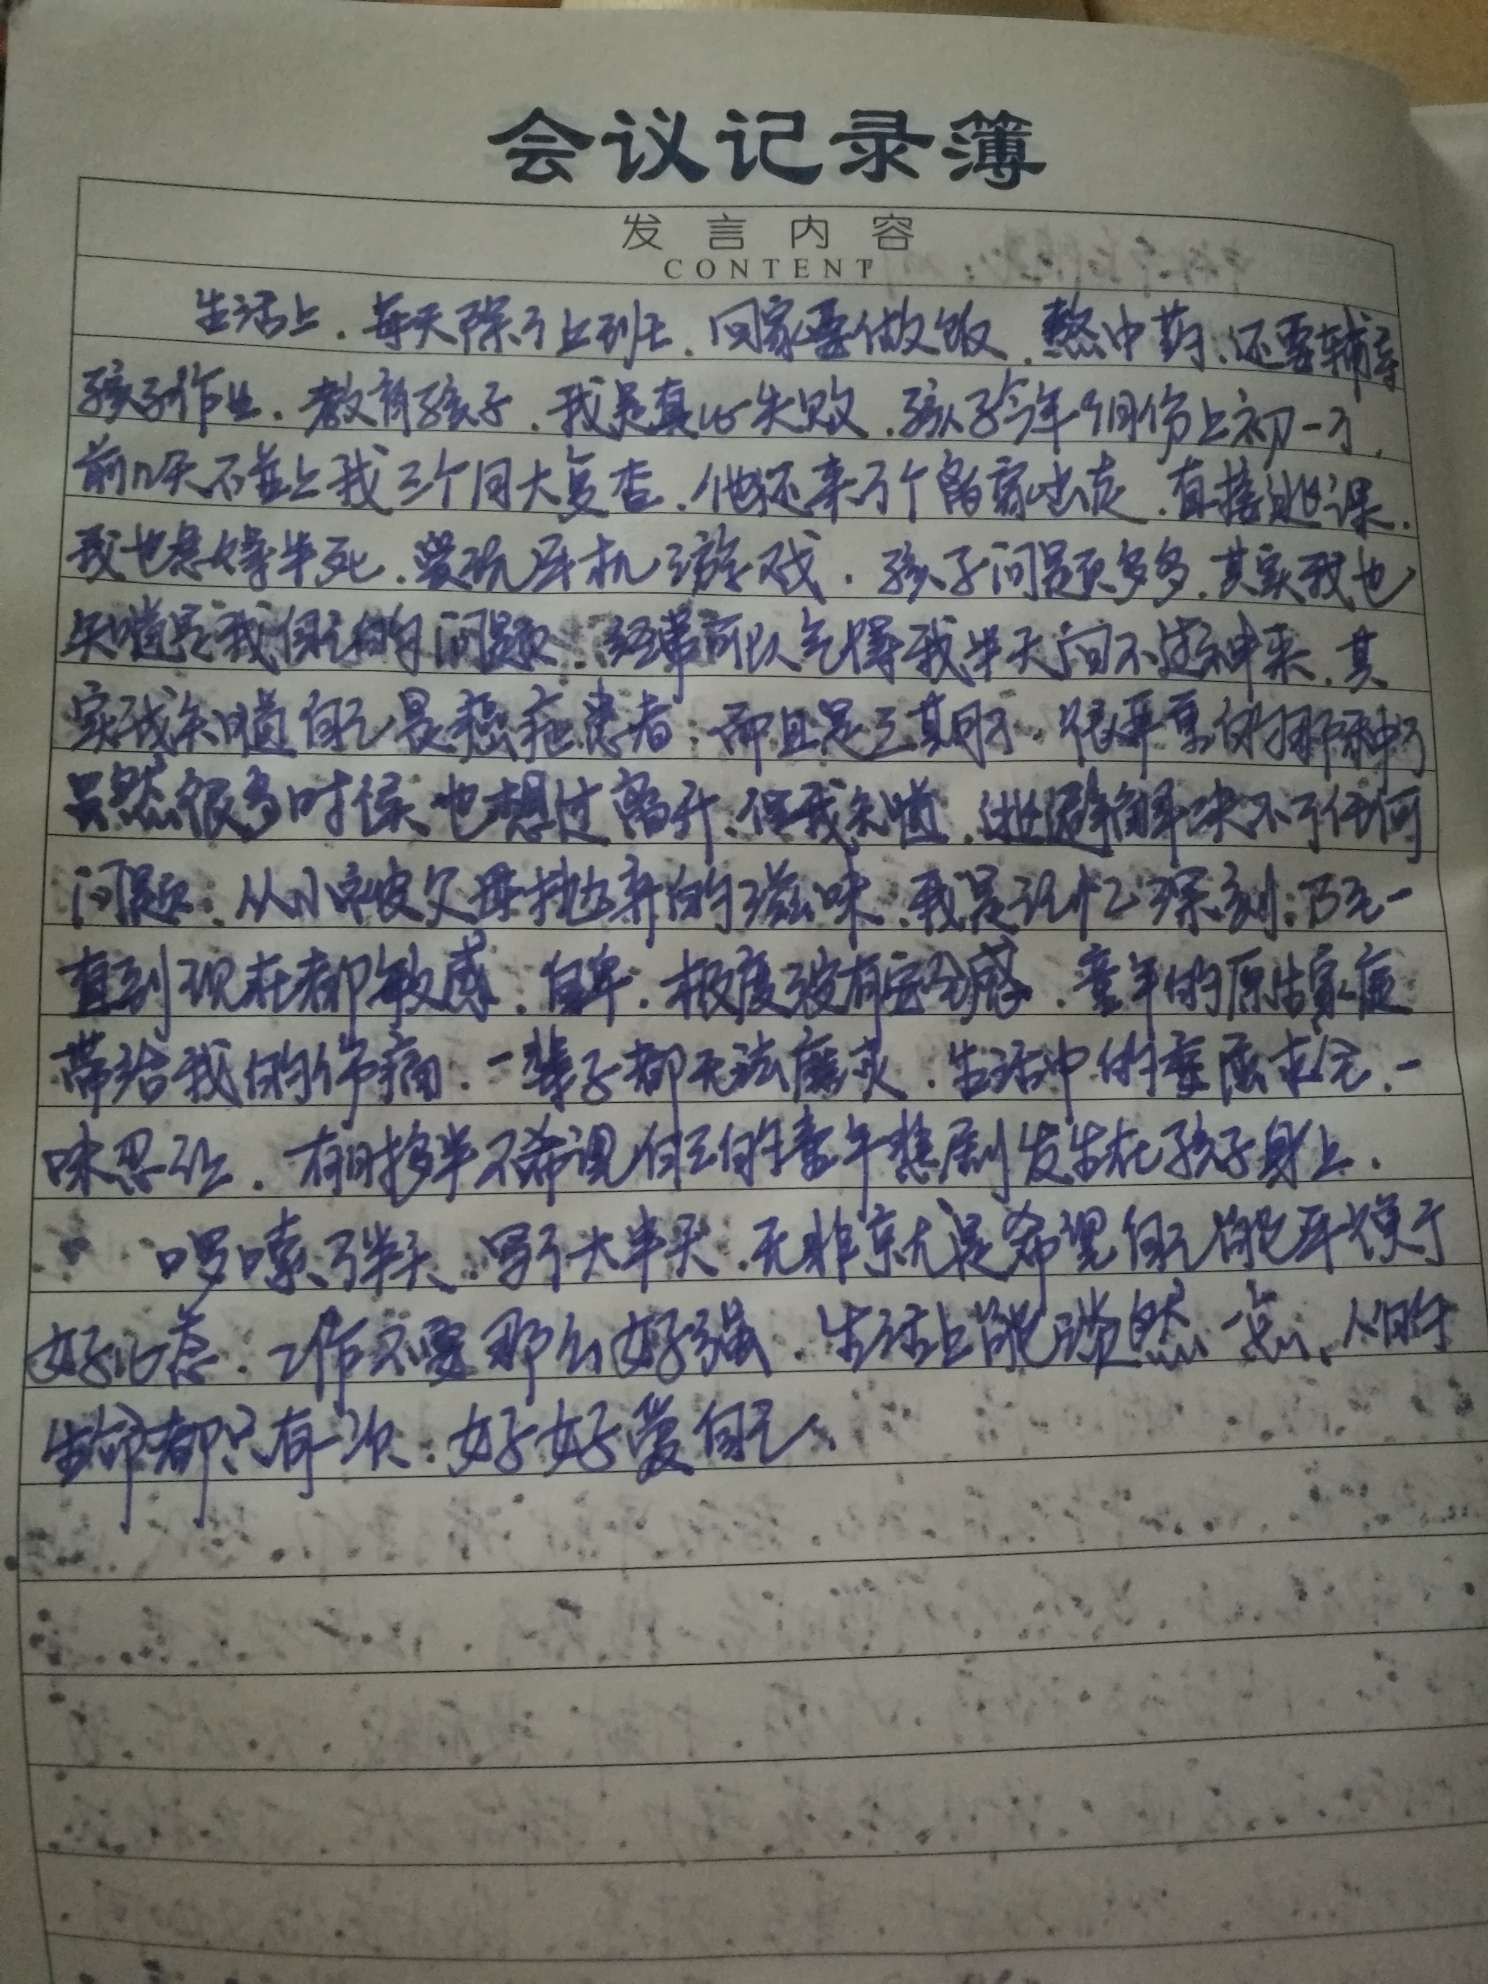 会议记录簿
发言内容
CONTENT
生活上.每天除了上班.回家要做饭.熬中药.还要辅导
孩子作业.教育孩子.我是真心失败.孩子今年9月份上初一了,
前几天不并上我三个月大复查.他还来了个离家出走.直接逃课.
我也急得半死.要玩手机游戏.孩子问题多多.其实我也
知道是我自己的问题.经常可以气得我半天回不过神来.其
实我知道自己是癌症患者.而且是三期了.很严重的那种了
虽然很多时候也想过离开.但我知道.逃避解决不了任何
问题.从小被父母抛弃的滋味.我是记忆深刻.乃至一
直到现在都敏感.自卑.极度没有安全感.童年的原生家庭
带给我的伤痛.一辈子都无法磨灭.生活中的委屈求全.一
味忍让.有时多半不希望自己的童年悲剧发生在孩子身上.
啰嗦了半天.写了大半天.无非就是希望自己能平复于
好心态.工作不要那么好强.生活上能淡然一点.人的
生命都只有一次.好好爱自己.